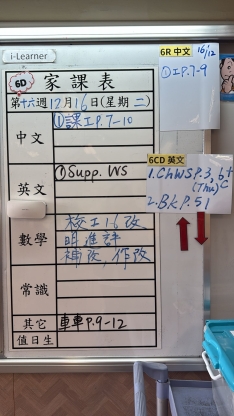 i-Learner
6D 家課表
第十六週12月16日(星期二)
中文
①課工P.7-10
英文
①Supp. WS
數學
校工16改
明進評
補改,作改
常識
其它
車車P.9-12
值日生
6R 中文 16/12
①工P.7-9
6CD 英文
1.ChWS P.3, b+c
(Thu)
2.Bk P.51